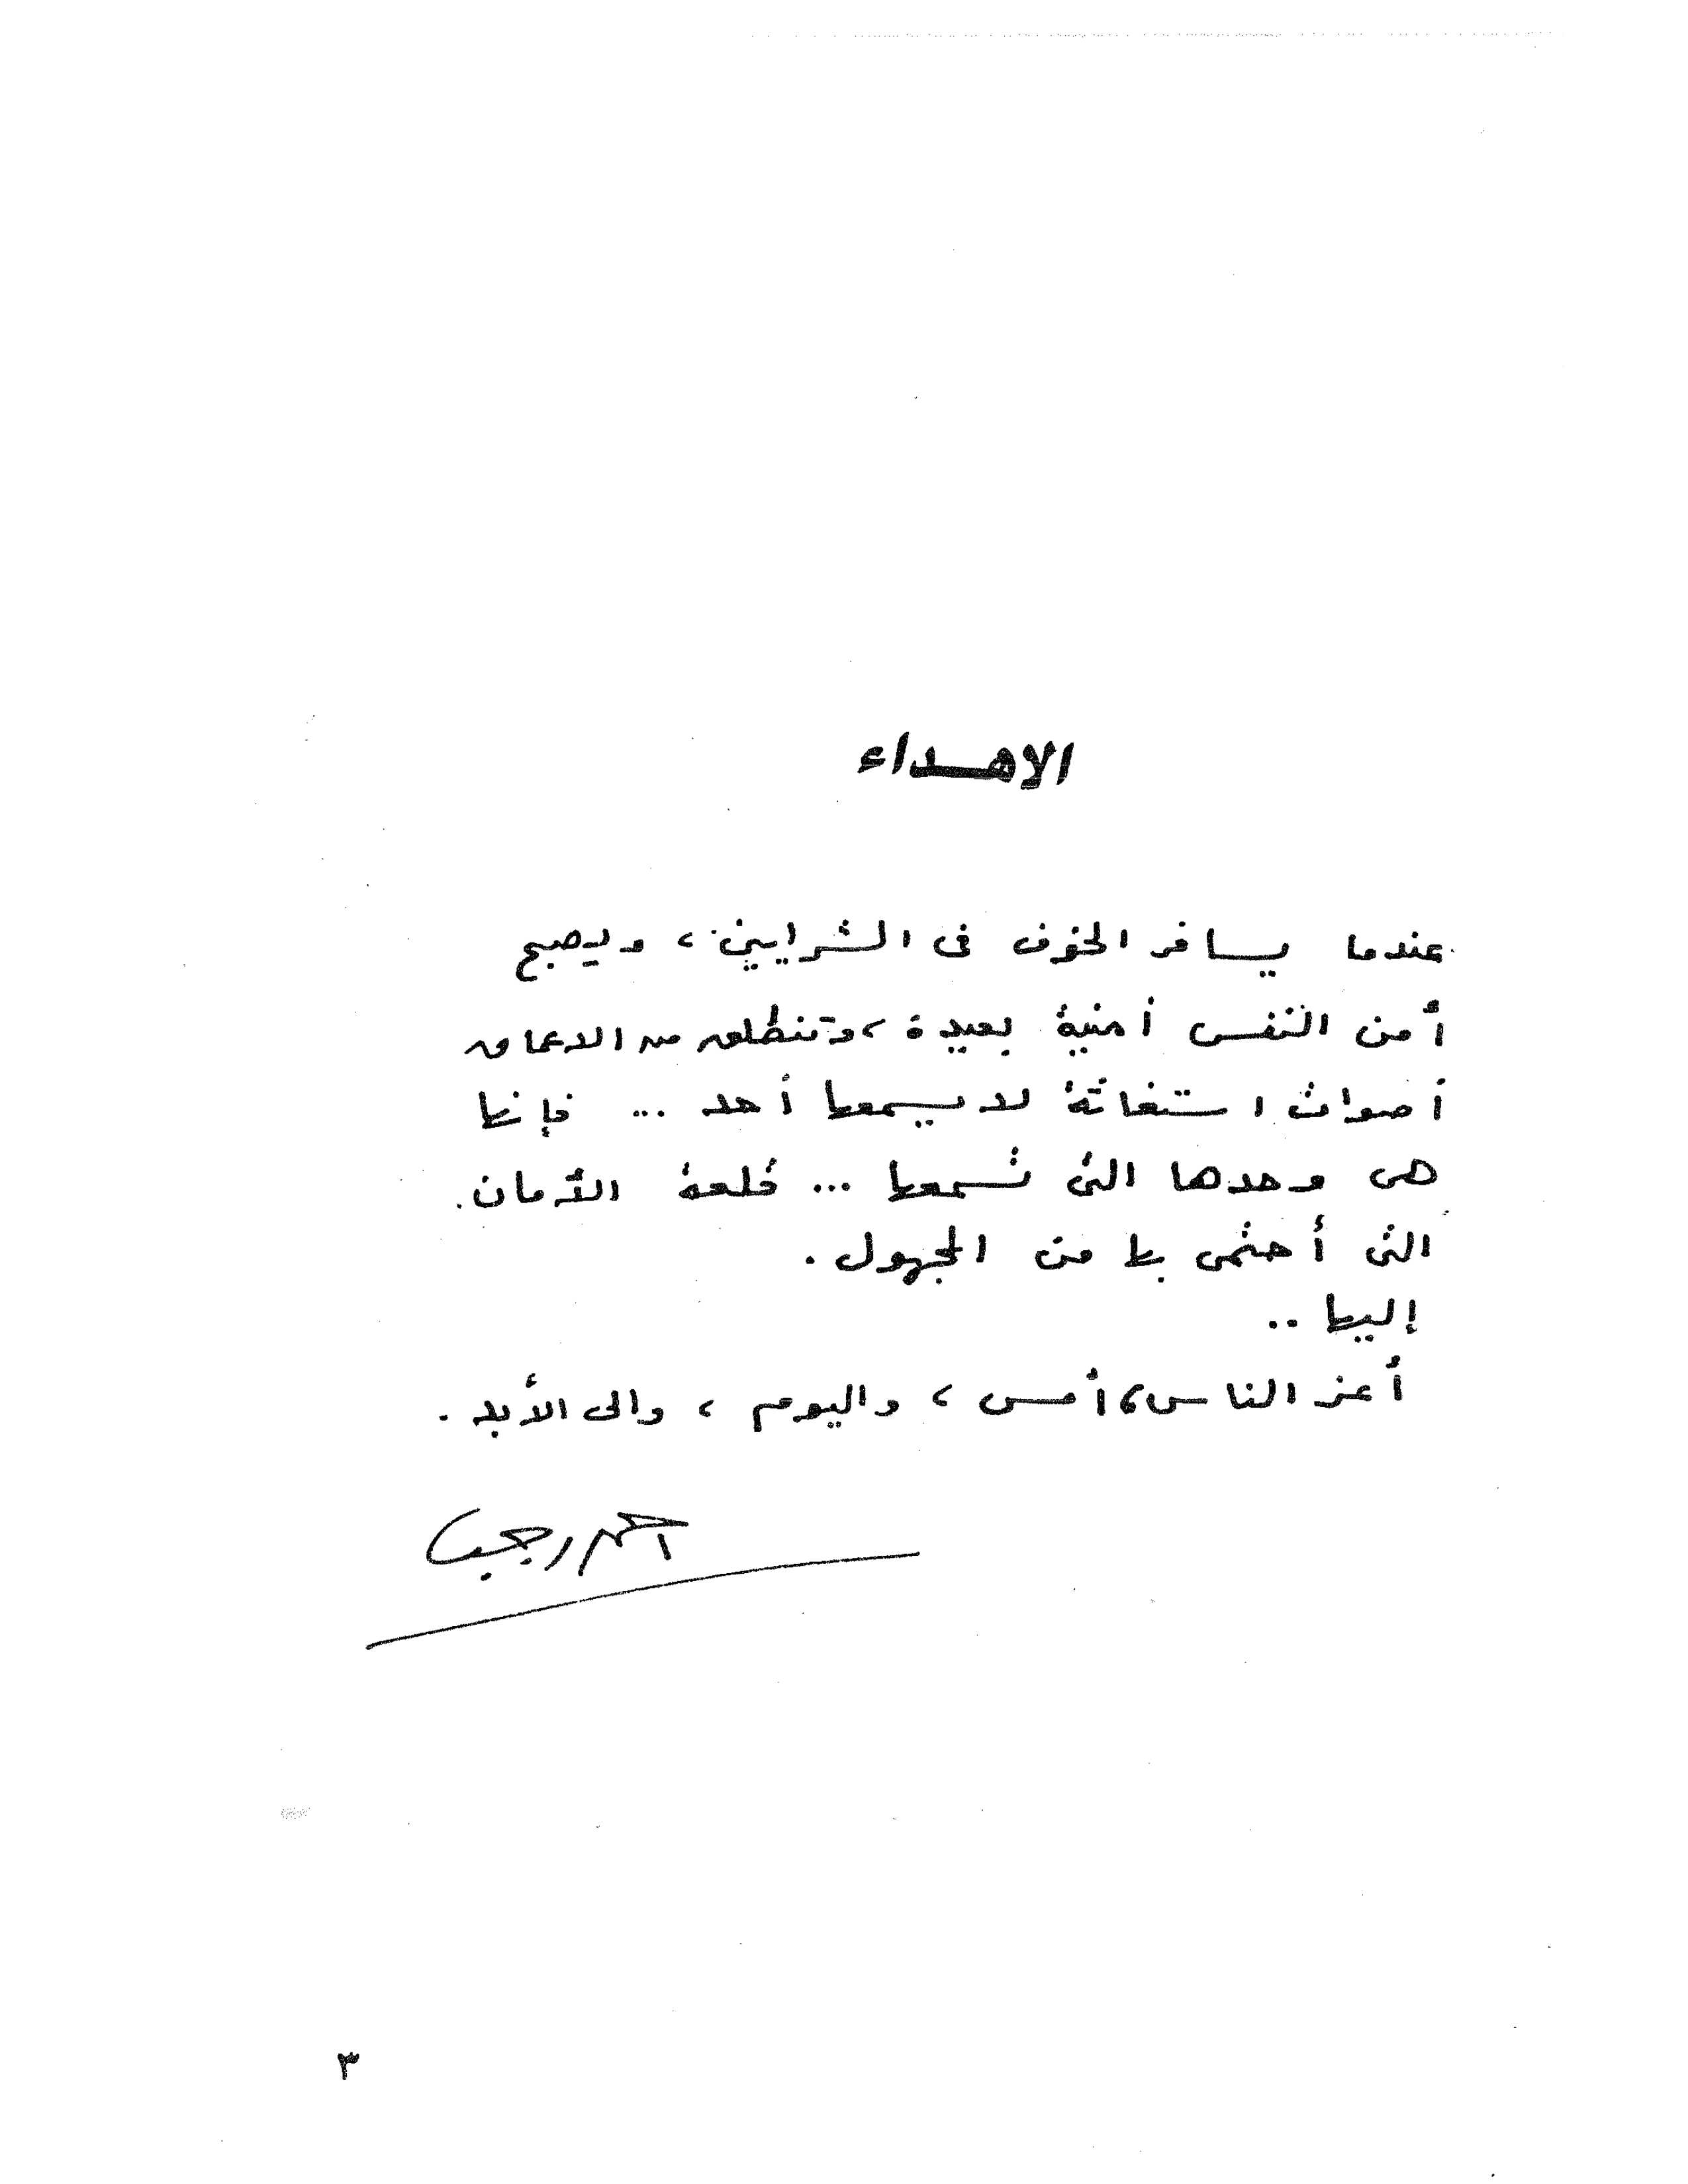 الاهداء
عندما يسافر الخوف فى الشرايين ، ويصبح
أمن النفس أمنية بعيدة ، وتنطلق من الاعماق
أصوات استغاثة لا يسمعها أحد ... فإنها
هى وحدها التى تسمعها ... قلعة الأمان
التى أحتمى بها من المجهول .
إليها ..
أعز الناس ، أمس ، واليوم ، والى الأبد .
احمد رجب
٣